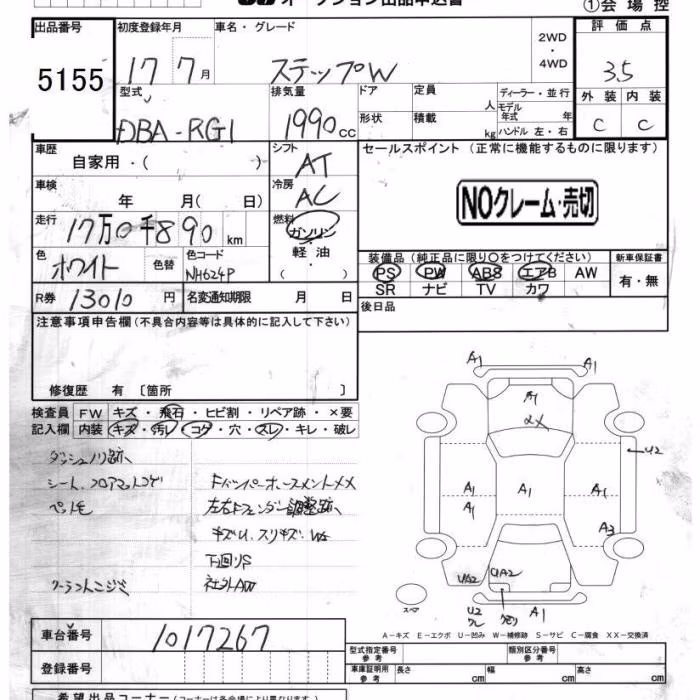 オークション出品申込書
①会場控
出品番号 初度登録年月 車名・グレード 2WD ・ 4WD 評価点
5155 17 7月 ステップW 3.5
型式 排気量 ドア 定員 人 ディーラー・並行 外装 内装
DBA-RG1 1990cc 形状 積載 kg モデル年式 年 ハンドル 左・右 C C
車歴 自家用・( ) シフト AT セールスポイント(正常に機能するものに限ります)
車検 年 月( 日) 冷房 AC NOクレーム・売切
走行 17万0千890km 燃料 ガソリン・軽油・( )
装備品(純正品に限り○をつけてください) 新車保証書
色 ホワイト 色替 色コード NH624P PS PW ABS エアB AW 有・無
SR ナビ TV カワ
R券 13010円 名変通知期限 月 日 後日品
注意事項申告欄(不具合内容等は具体的に記入して下さい)
修復歴 有 〔箇所 〕
検査員 FW キズ・飛石・ヒビ割・リペア跡・×要
記入欄 内装 キズ・汚レ・コゲ・穴・スレ・キレ・破レ
ダッシュノリ跡
シート、フロアマットコゲ
ペット毛
左右Fフェンダー調整跡
キズU、スリキズ、W2
下回りS
社外AW
A1 A1
A1
U2
A1 A1 A1
A1
A3
UA2 UA2
スペア U2 A1
A-キズ E-エクボ U-凹み W-補修跡 S-サビ C-腐食 XX-交換済
車台番号 1017267
型式指定番号 参考 類別区分番号 参考
登録番号 車庫証明用 参考 長さ cm 幅 cm 高さ cm
希望出品コーナー(コーナーは各会場により異なります)